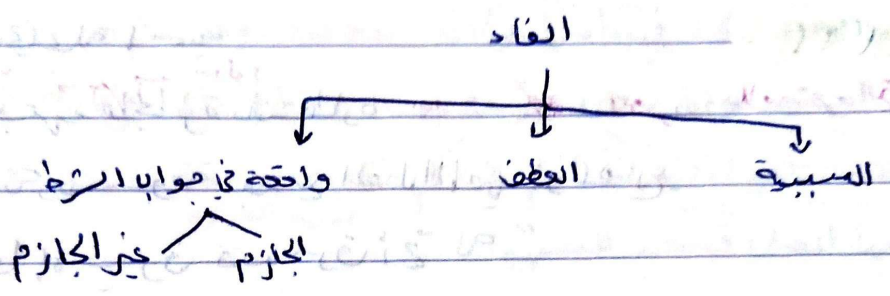 الفاء
السببية العطف واقعة في جواب الشرط
الجازم غير الجازم